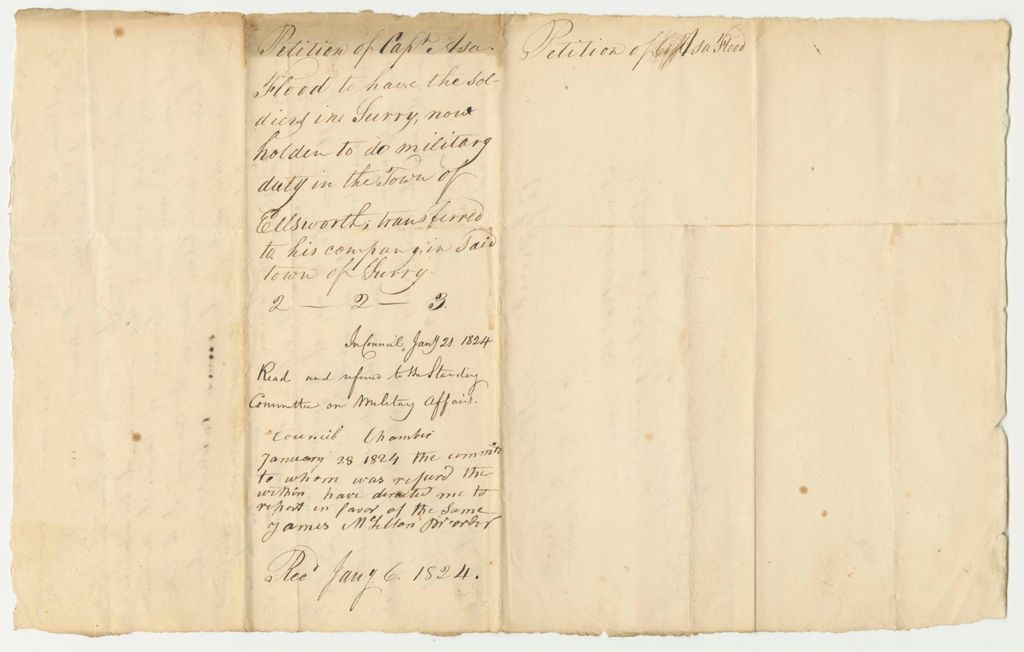 Petition of Capt Asa
Flood to have the sol-
diers in Surry, now
holden to do military
duty in the Town of
Ellsworth; transferrid
to his company, in Said
town of Surry
2 — 2 — 3.
In Council, Jany 21. 1824
Read and referred to the Standing
Committee on Military Affairs.
Council Chamber
January 28 1824 the committe
to whom was refurd the
within have derected me to
report in favor of the Same
James Pr order
Recd Jany 6. 1824.
Petition of Asa Flood